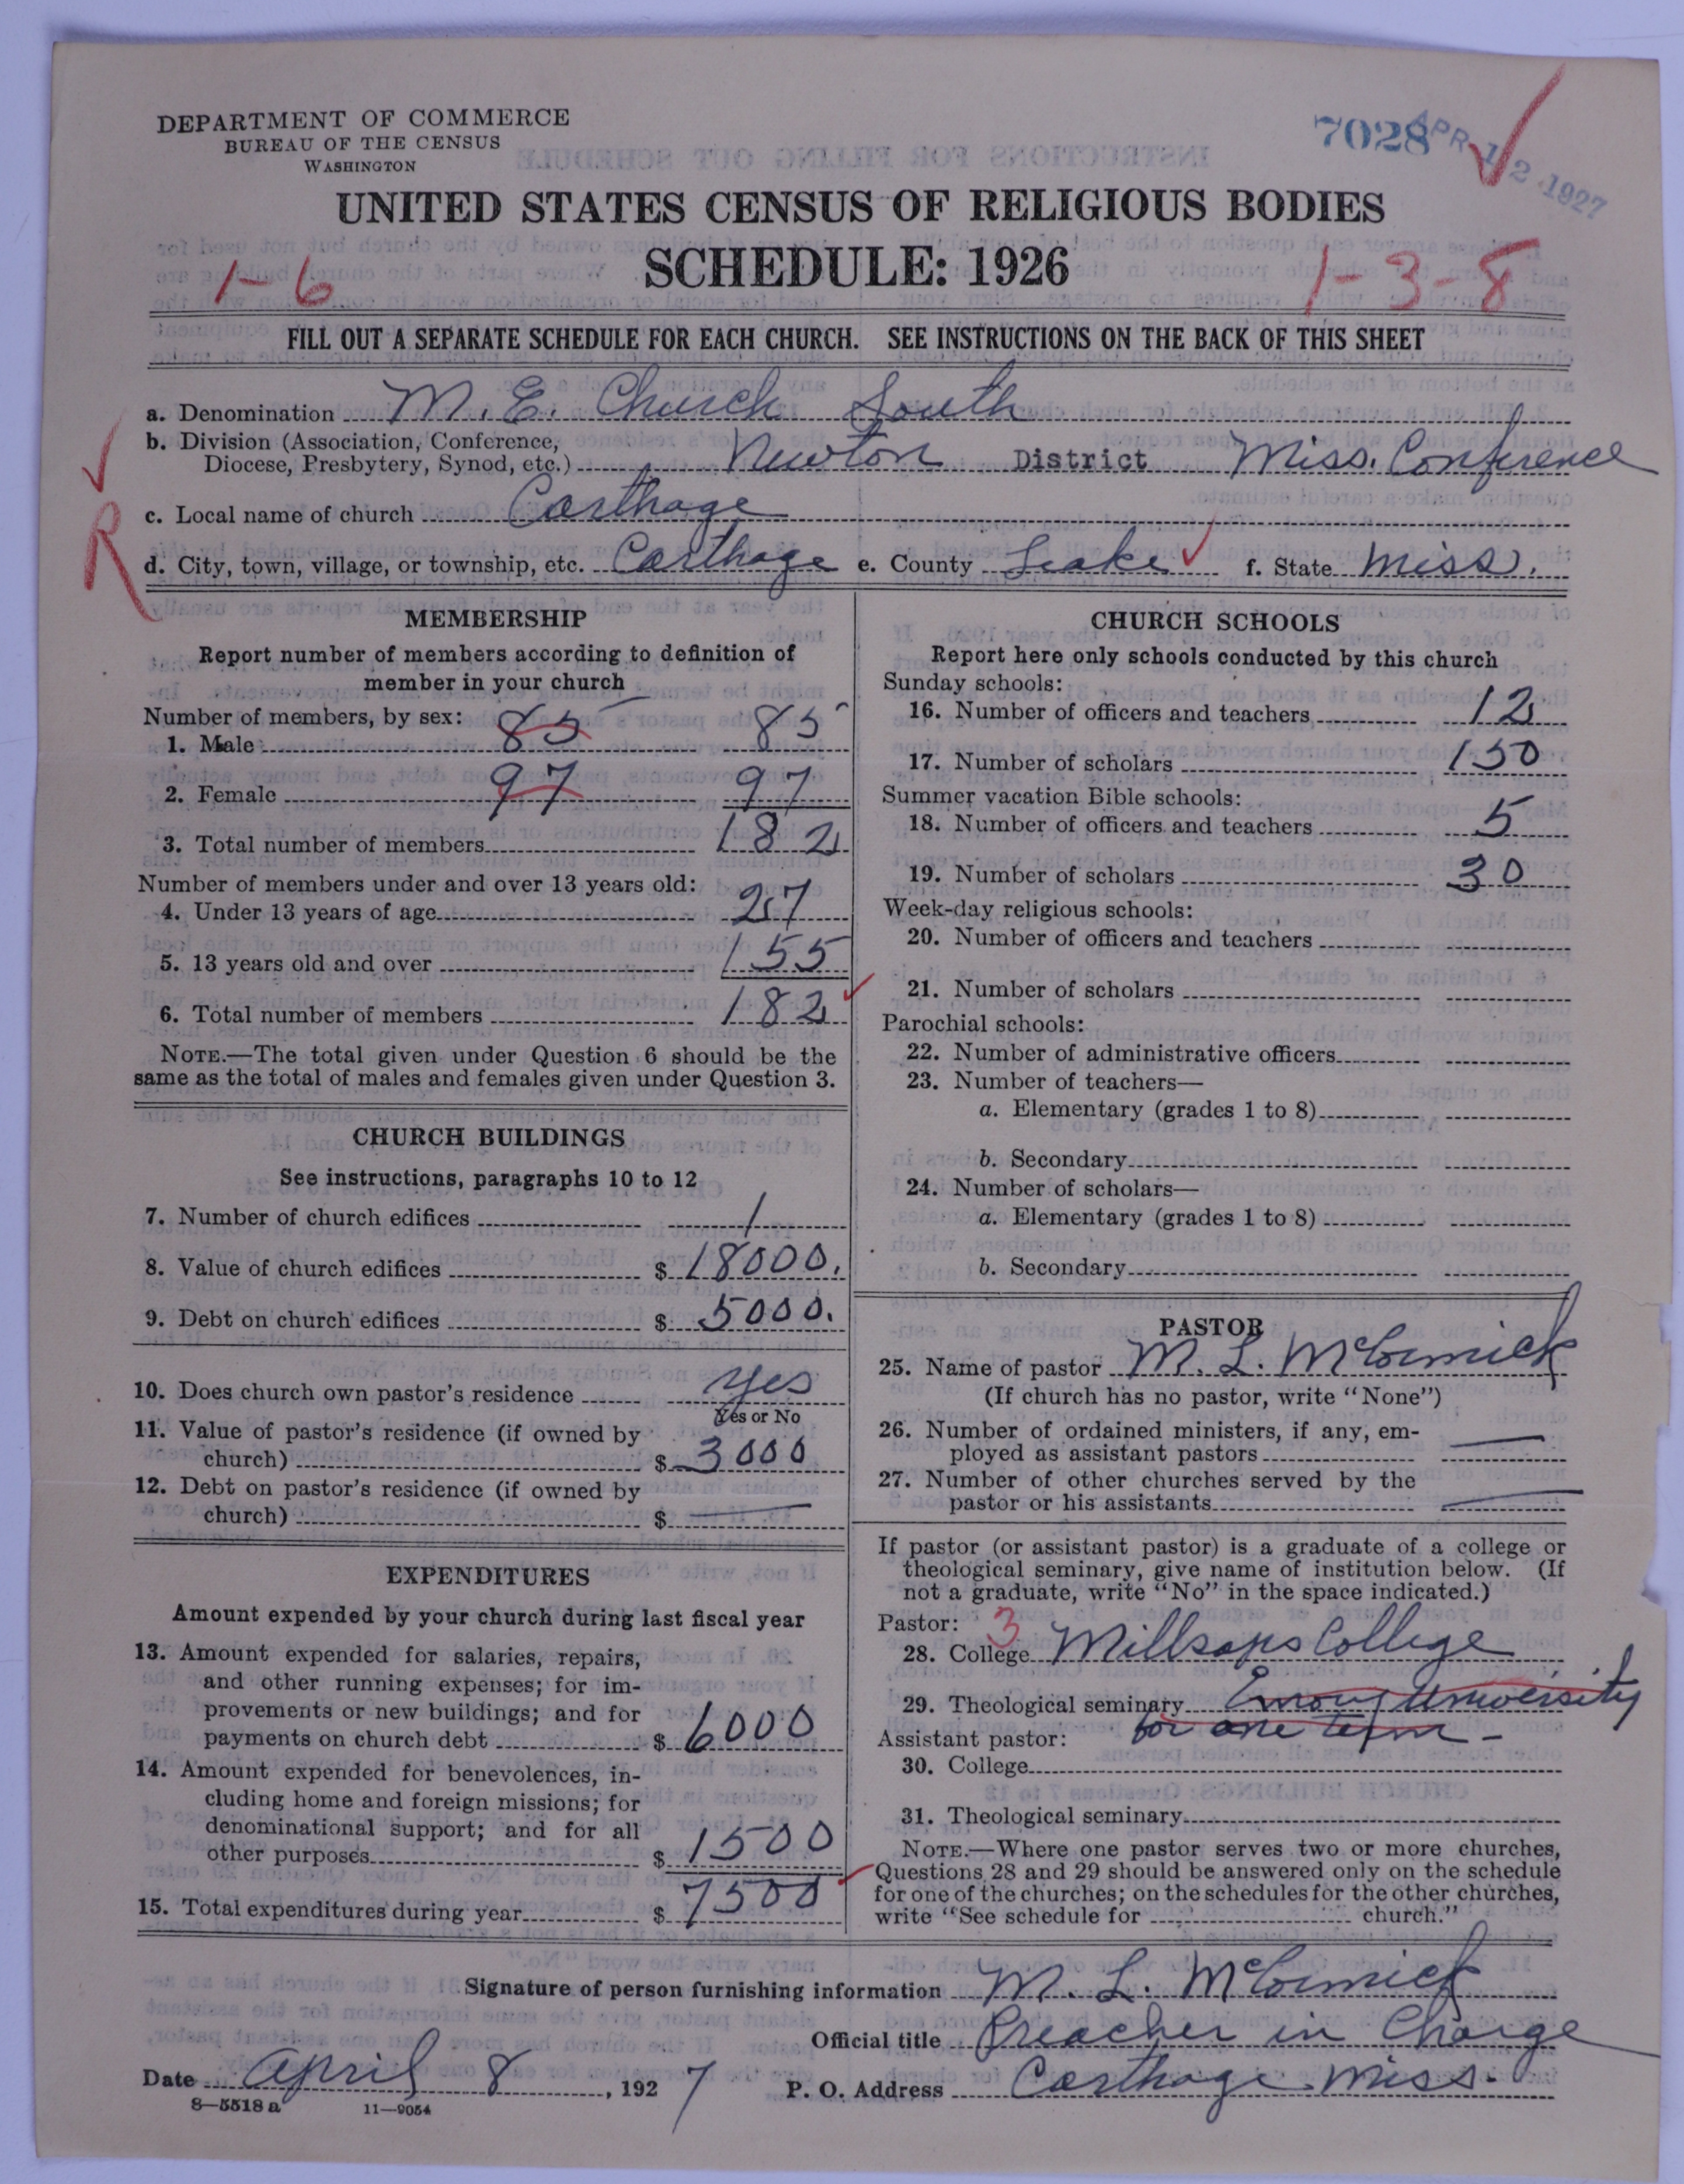 DEPARTMENT OF COMMERCE
BUREAU OF THE CENSUS
WASHINGTON
7028
APR 12 1927
UNITED STATES CENSUS OF RELIGIOUS BODIES
SCHEDULE: 1926
1-6
1-3-8
FILL OUT A SEPARATE SCHEDULE FOR EACH CHURCH. SEE INSTRUCTIONS ON THE BACK OF THIS SHEET
a. Denomination M. E. Church South
b. Division (Association, Conference,
Diocese, Presbytery, Synod, etc.) Newton District Miss. Conference
c. Local name of church Carthage
R
d. City, town, village, or township, etc. Carthage e. County Leake f. State Miss.
MEMBERSHIP
Report number of members according to definition of
member in your church
Number of members, by sex:
1. Male 85 85
2. Female 97 97
3. Total number of members 182
Number of members under and over 13 years old:
4. Under 13 years of age 27
5. 13 years old and over 155
6. Total number of members 182
NOTE.—The total given under Question 6 should be the
same as the total of males and females given under Question 3.
CHURCH BUILDINGS
See instructions, paragraphs 10 to 12
7. Number of church edifices 1
8. Value of church edifices $ 18000.
9. Debt on church edifices $ 5000.
10. Does church own pastor's residence yes
Yes or No
11. Value of pastor's residence (if owned by
church) $ 3000
12. Debt on pastor's residence (if owned by
church) $ —
EXPENDITURES
Amount expended by your church during last fiscal year
13. Amount expended for salaries, repairs,
and other running expenses; for im-
provements or new buildings; and for
payments on church debt $ 6000
14. Amount expended for benevolences, in-
cluding home and foreign missions; for
denominational support; and for all
other purposes $ 1500
15. Total expenditures during year $ 7500
CHURCH SCHOOLS
Report here only schools conducted by this church
Sunday schools:
16. Number of officers and teachers 12
17. Number of scholars 150
Summer vacation Bible schools:
18. Number of officers and teachers 5
19. Number of scholars 30
Week-day religious schools:
20. Number of officers and teachers
21. Number of scholars
Parochial schools:
22. Number of administrative officers
23. Number of teachers—
a. Elementary (grades 1 to 8)
b. Secondary
24. Number of scholars—
a. Elementary (grades 1 to 8)
b. Secondary
PASTOR
25. Name of pastor M. L. McCormick
(If church has no pastor, write "None")
26. Number of ordained ministers, if any, em-
ployed as assistant pastors —
27. Number of other churches served by the
pastor or his assistants —
If pastor (or assistant pastor) is a graduate of a college or
theological seminary, give name of institution below. (If
not a graduate, write "No" in the space indicated.)
Pastor: 3
28. College Millsaps College
29. Theological seminary Emory University
for one term -
Assistant pastor:
30. College
31. Theological seminary
NOTE.—Where one pastor serves two or more churches,
Questions 28 and 29 should be answered only on the schedule
for one of the churches; on the schedules for the other churches,
write "See schedule for church."
Signature of person furnishing information M. L. McCormick
Official title Preacher in Charge
Date April 8, 1927 P. O. Address Carthage Miss.
8—5518 a 11—9054